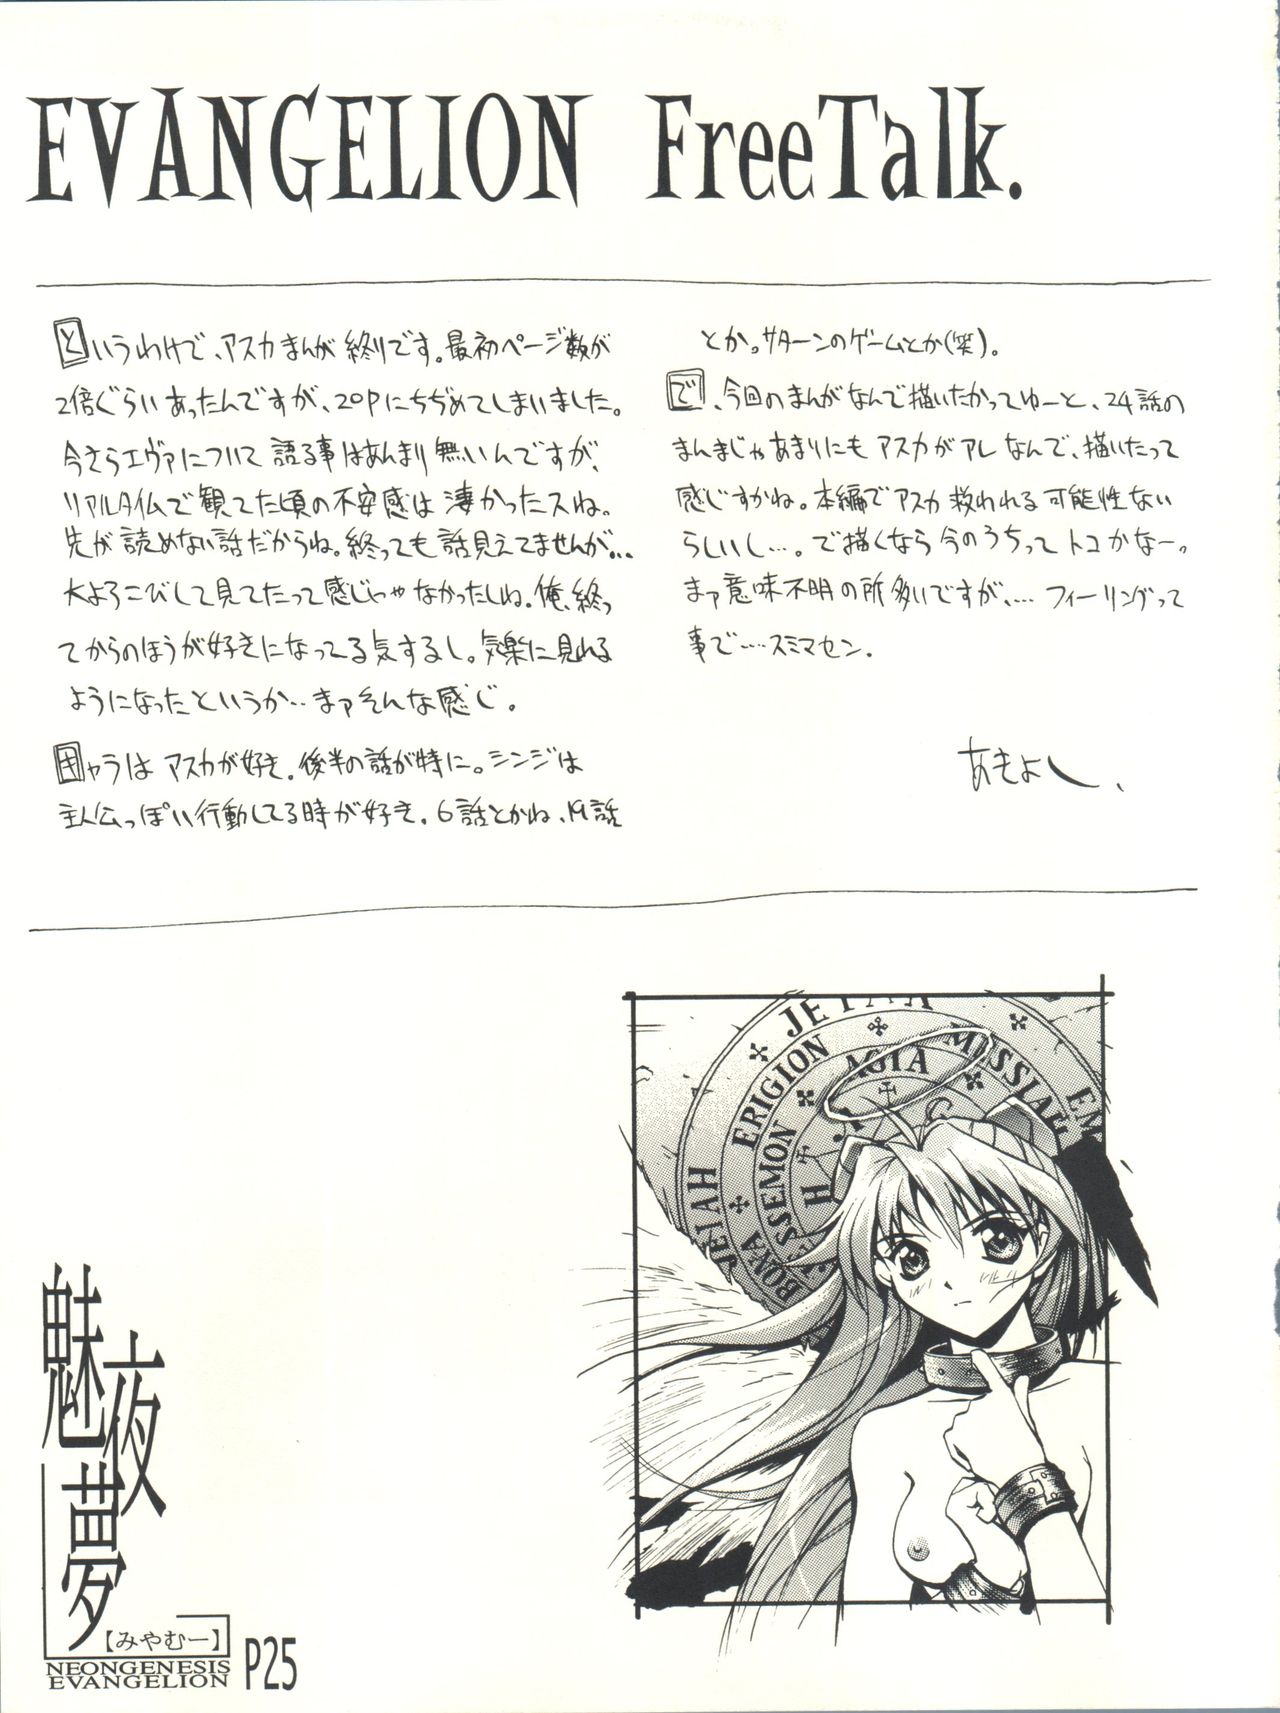 EVANGELION FreeTalk.
というわけで、アスカまんが終りです。最初ページ数が
2倍ぐらいあったんですが、20Pにちぢめてしまいました。
今さらエヴァについて語る事はあんまり無いんですが、
リアルタイムで観てた頃の不安感は凄かったスね。
先が読めない話だからね。終っても話見えてませんが…
大よろこびして見てたって感じじゃなかったしね。俺、終っ
てからのほうが好きになってる気するし。気楽に見れる
ようになったというか…まァそんな感じ。
キャラはアスカが好き。後半の話が特に。シンジは
主人公っぽい行動してる時が好き。6話とかね、19話
とか。サターンのゲームとか(笑)。
で、今回のまんがなんで描いたかってゆーと、24話の
まんまじゃあまりにもアスカがアレなんで、描いたって
感じすかね。本編でアスカ救われる可能性ない
らしいし…。で描くなら今のうちってトコかなー。
まァ意味不明の所多いですが、…フィーリングって
事で……スミマセン。
あきよし、
JEIAH
ERIGION
AGIA
MESSIAH
EM
JEIAH
BONA
ESSEMON
H
G
魅夜夢
【みやむー】
NEONGENESIS
EVANGELION
P25